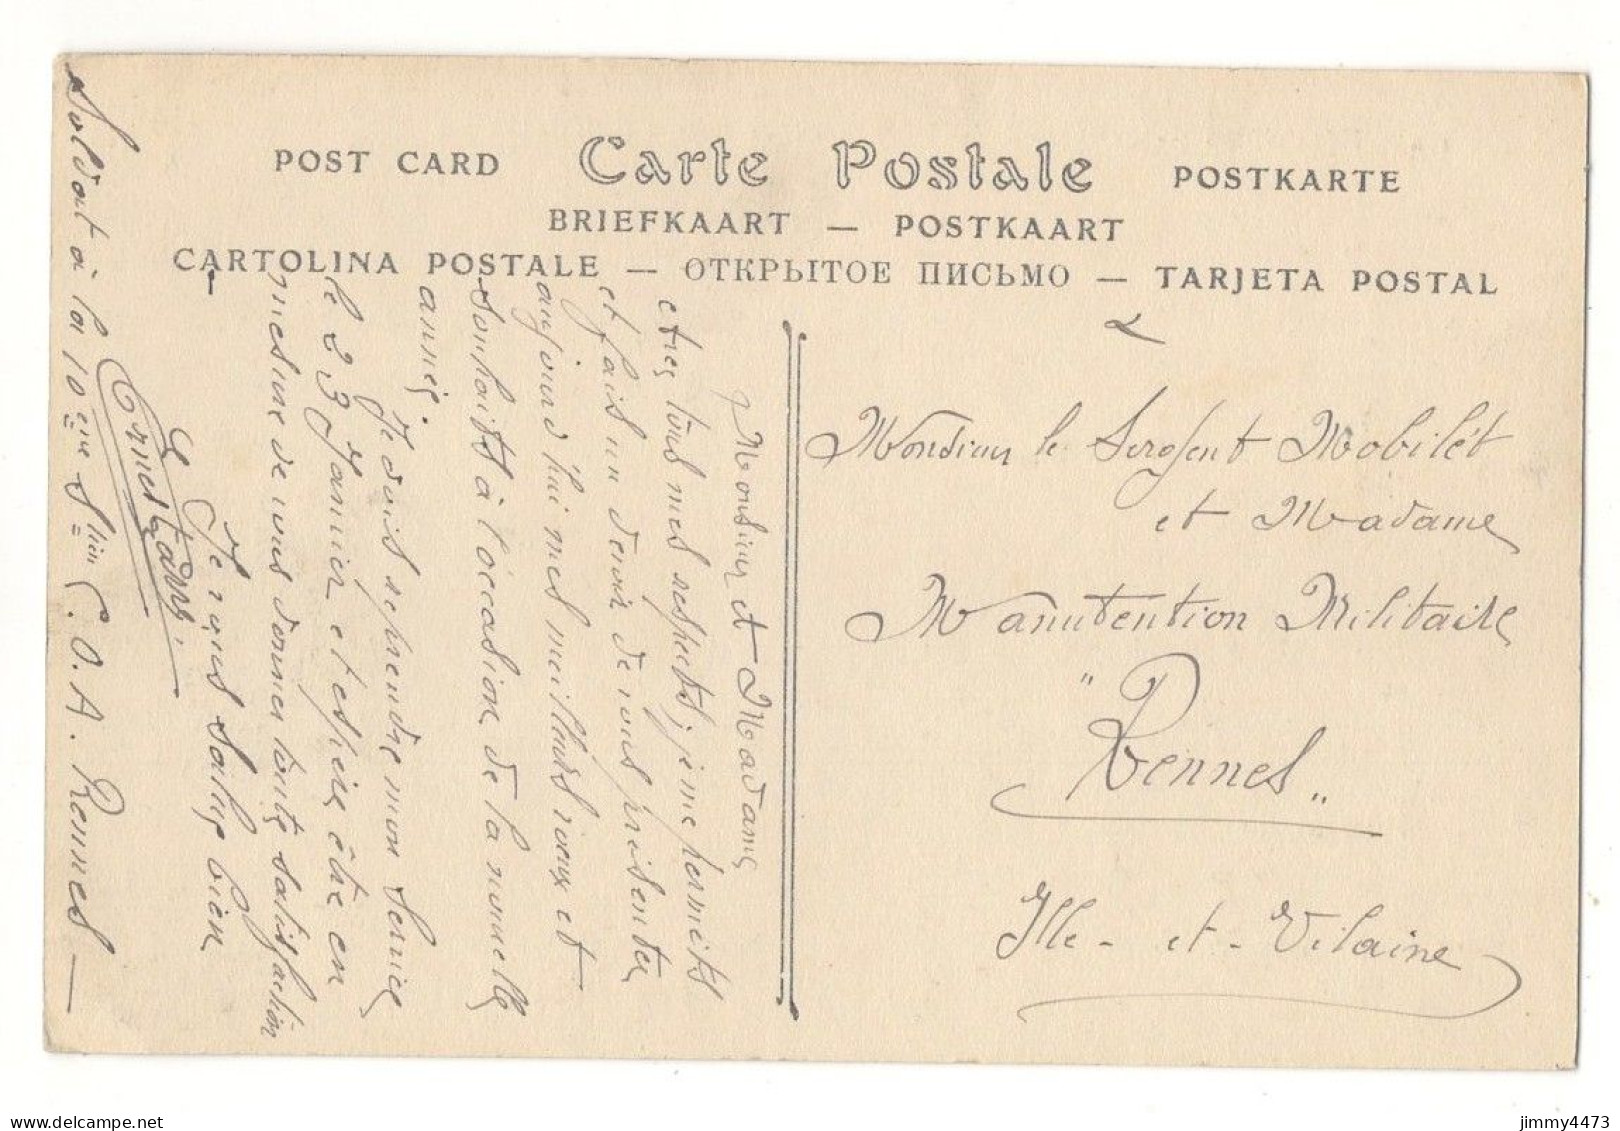 POST CARD Carte Postale POSTKARTE
BRIEFKAART — POSTKAART
CARTOLINA POSTALE — ОТКРЫТОЕ ПИСЬМО — TARJETA POSTAL
Monsieur le Sergent Mobilét
et Madame
Manutention Militaire
"Rennes"
Ille - et - Vilaine
Monsieur et Madame
etres tous mes respects, je me permets
et fais un devoir de vous présenter
aujourd'hui mes meilleurs vœux et
souhaits à l'occasion de la nouvelle
année.
Je dois reprendre mon service
le 23 Janvier et espère être en
mesure de vous donner toute satisfaction
Je vous salue bien
Soldat à la 10eme Stion C. O. A. Rennes —
jimmy4473
delcampe.net